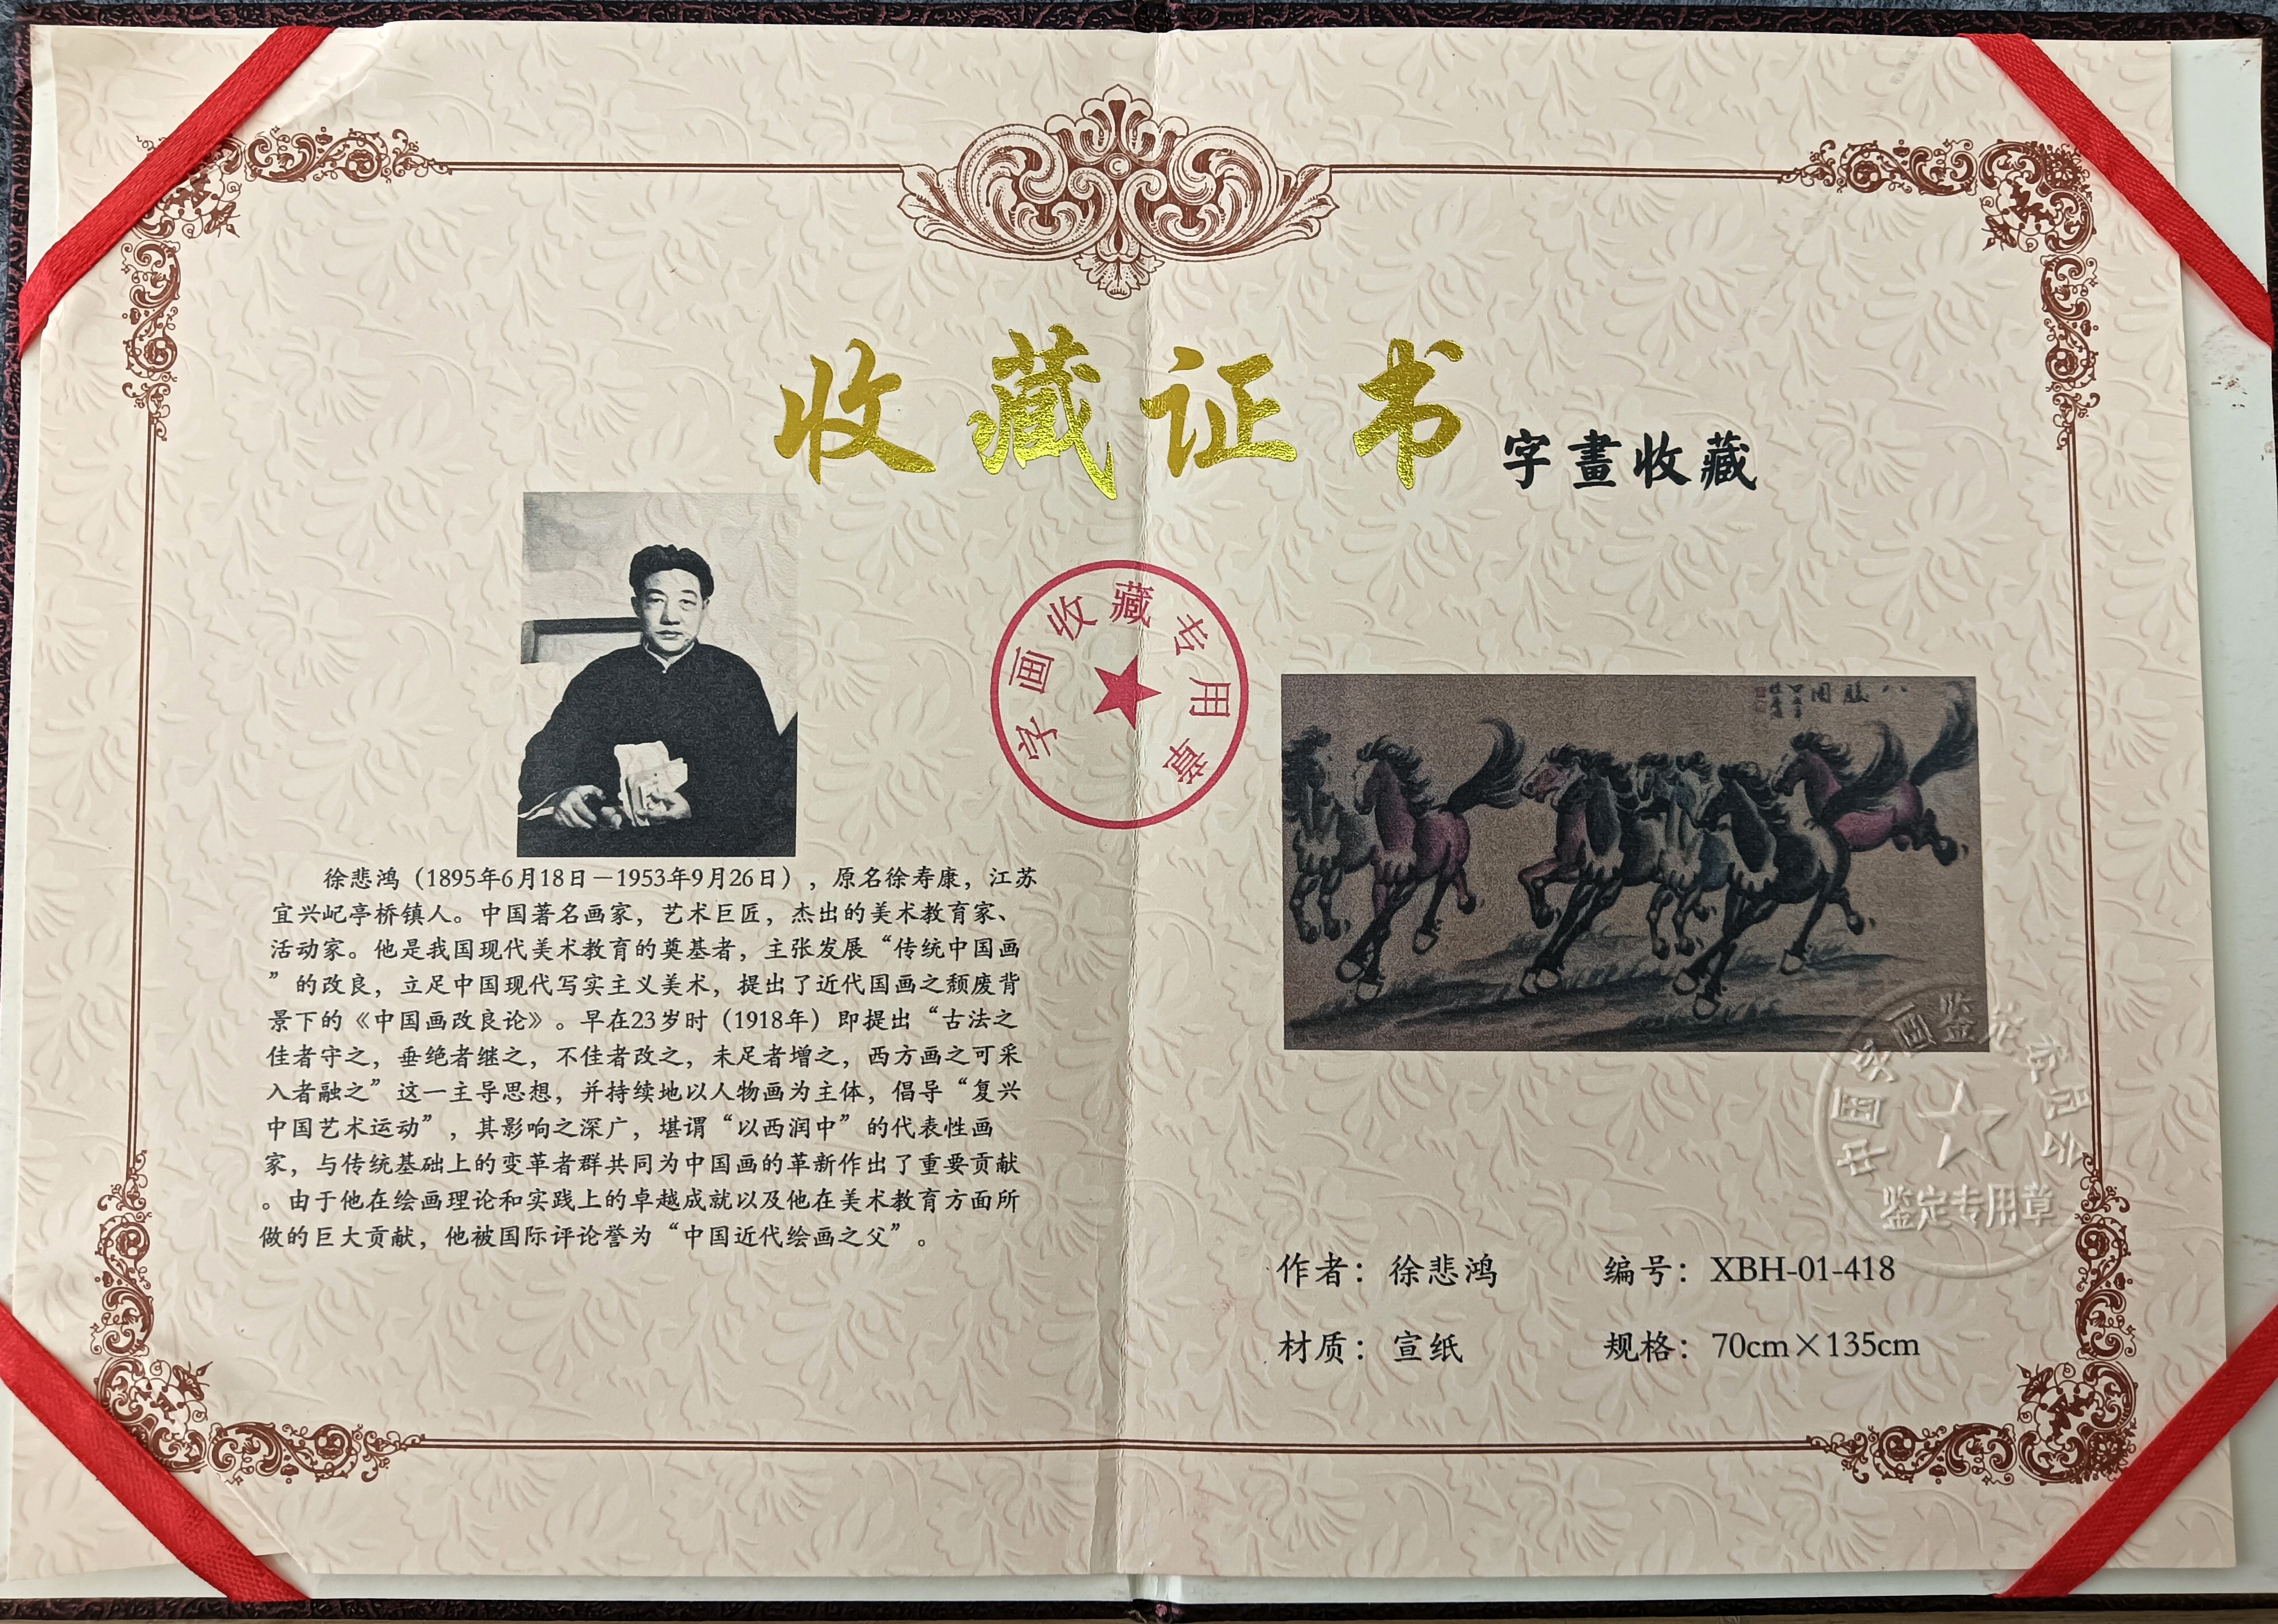 收藏证书
字畫收藏
字画收藏专用章
徐悲鸿（1895年6月18日－1953年9月26日），原名徐寿康，江苏
宜兴屺亭桥镇人。中国著名画家，艺术巨匠，杰出的美术教育家、
活动家。他是我国现代美术教育的奠基者，主张发展“传统中国画
”的改良，立足中国现代写实主义美术，提出了近代国画之颓废背
景下的《中国画改良论》。早在23岁时（1918年）即提出“古法之
佳者守之，垂绝者继之，不佳者改之，未足者增之，西方画之可采
入者融之”这一主导思想，并持续地以人物画为主体，倡导“复兴
中国艺术运动”，其影响之深广，堪谓“以西润中”的代表性画
家，与传统基础上的变革者群共同为中国画的革新作出了重要贡献
。由于他在绘画理论和实践上的卓越成就以及他在美术教育方面所
做的巨大贡献，他被国际评论誉为“中国近代绘画之父”。
八駿图
中国字画鉴定委员会
鉴定专用章
作者：徐悲鸿 编号：XBH-01-418
材质：宣纸 规格：70cm×135cm